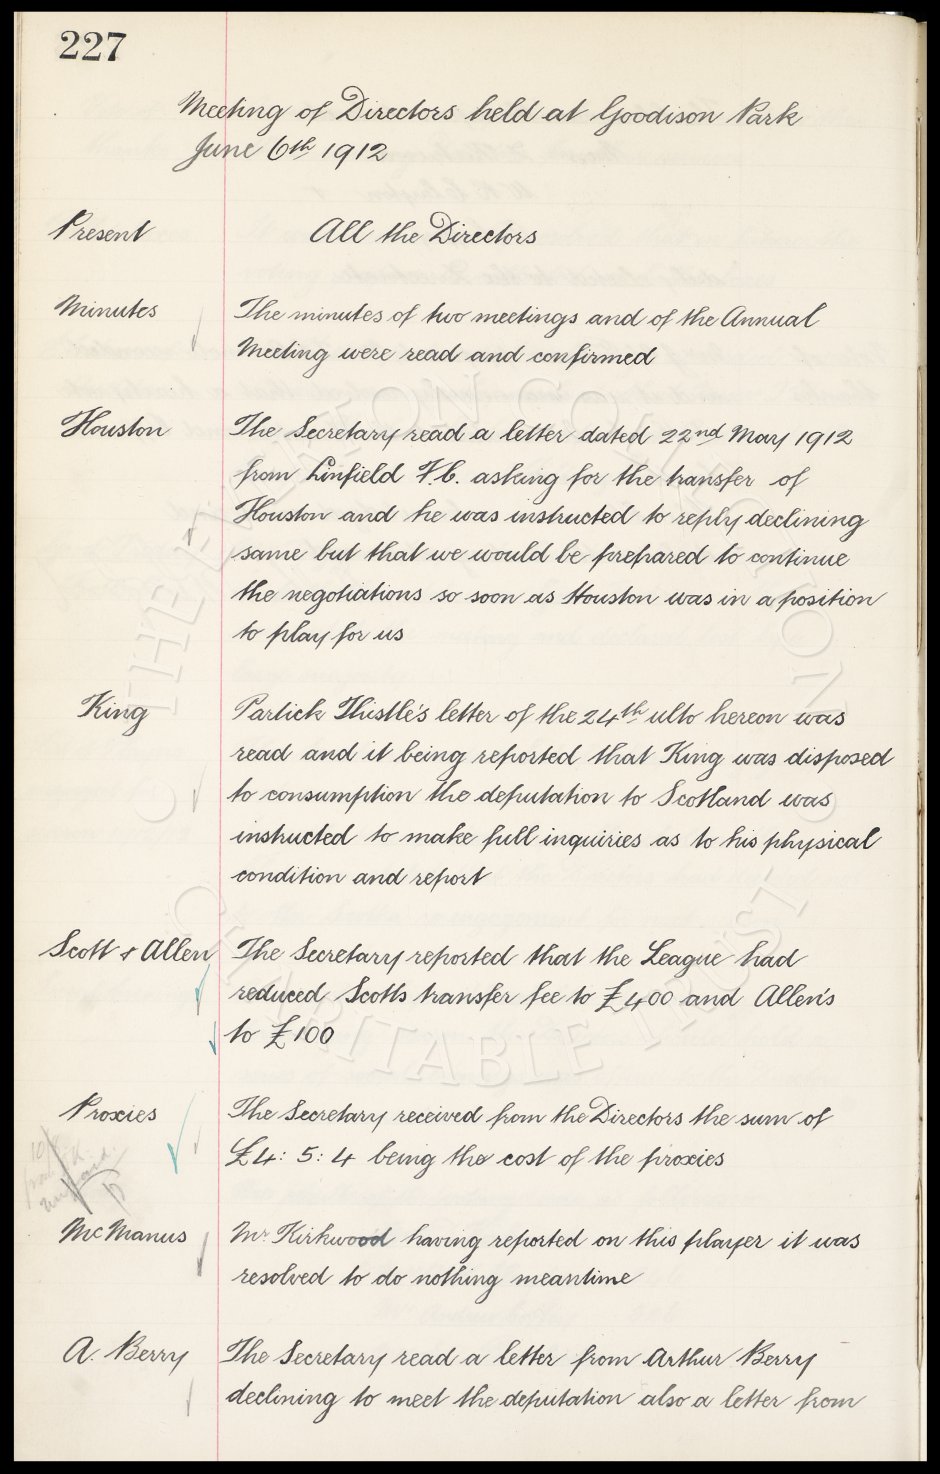 227
Meeting of Directors held at Goodison Park
June 6th 1912
Present All the Directors
Minutes The minutes of two meetings and of the Annual
Meeting were read and confirmed
Houston The Secretary read a letter dated 22nd May 1912
from Linfield F.C. asking for the transfer of
Houston and he was instructed to reply declining
same but that we would be prepared to continue
the negotiations so soon as Houston was in a position
to play for us
King Partick Thistle's letter of the 24th ulto hereon was
read and it being reported that King was disposed
to consumption the deputation to Scotland was
instructed to make full inquiries as to his physical
condition and report
Scott & Allen The Secretary reported that the League had
reduced Scotts transfer fee to £400 and Allen's
to £100
Proxies The Secretary received from the Directors the sum of
£4: 5: 4 being the cost of the proxies
McManus Mr Kirkwood having reported on this player it was
resolved to do nothing meantime
A. Berry The Secretary read a letter from Arthur Berry
declining to meet the deputation also a letter from
© THE EVERTON COLLECTION
© CHARITABLE TRUST